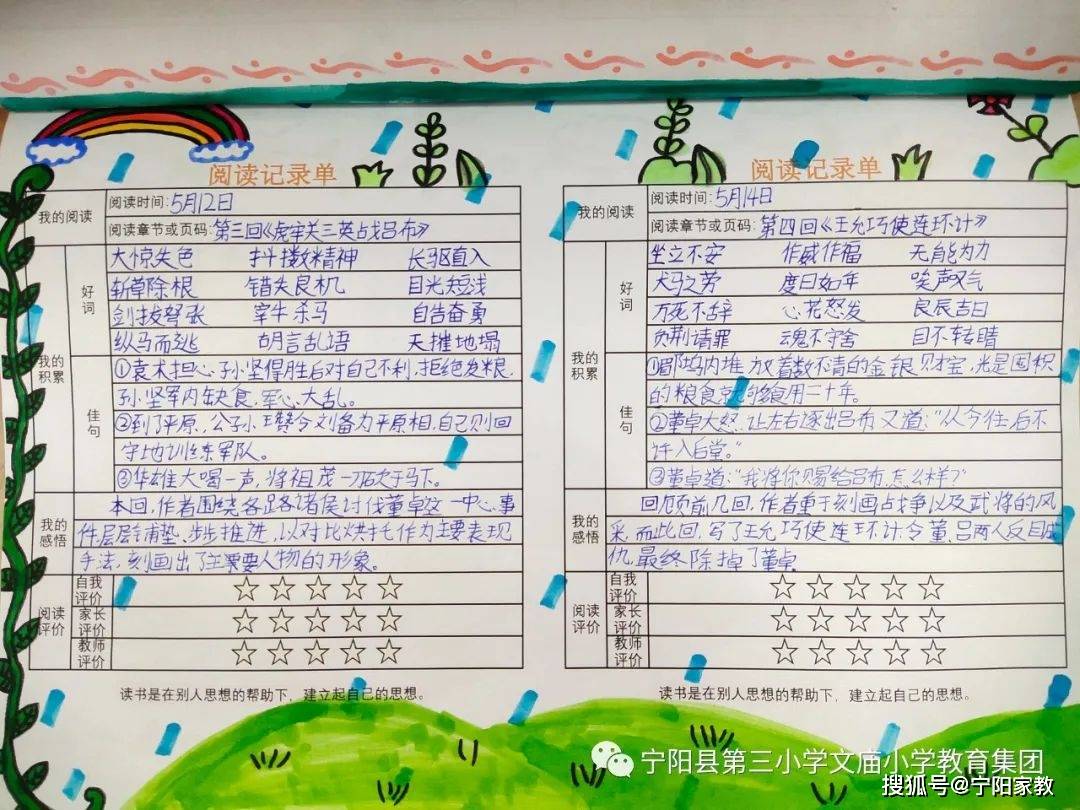 阅读记录单
我的阅读
阅读时间:5月12日
阅读章节或页码:第三回《虎牢关三英战吕布》
我的积累
好词
大惊失色 抖擞精神 长驱直入
斩草除根 错失良机 目光短浅
剑拔弩张 宰牛杀马 自告奋勇
纵马而逃 胡言乱语 天摧地塌
佳句
①袁术担心,孙坚得胜后对自己不利,拒绝发粮,
孙坚军内缺食,军心大乱。
②到了平原,公孙瓒令刘备为平原相,自己则回
守地训练军队。
③华雄大喝一声,将祖茂一刀砍于马下。
我的感悟
本回,作者围绕各路诸侯讨伐董卓这一中心事
件,层层铺垫、步步推进,以对比烘托作为主要表现
手法,刻画出了主要人物的形象。
阅读评价
自我评价 ☆☆☆☆☆
家长评价 ☆☆☆☆☆
教师评价 ☆☆☆☆☆
读书是在别人思想的帮助下,建立起自己的思想。
阅读记录单
我的阅读
阅读时间:5月14日
阅读章节或页码:第四回《王允巧使连环计》
我的积累
好词
坐立不安 作威作福 无能为力
犬马之劳 度日如年 唉声叹气
万死不辞 心花怒发 良辰吉日
负荆请罪 魂不守舍 目不转睛
佳句
①郿坞内堆放着数不清的金银财宝,光是囤积
的粮食就够食用二十年。
②董卓大怒,让左右逐出吕布,又道:“从今往后不
许入后堂。”
③董卓道:“我将你赐给吕布,怎么样?”
我的感悟
回顾前几回,作者重于刻画占战争以及武将的风
采,而此回,写了王允巧使连环计,令董、吕两人反目成
仇,最终除掉了董卓
阅读评价
自我评价 ☆☆☆☆☆
家长评价 ☆☆☆☆☆
教师评价 ☆☆☆☆☆
读书是在别人思想的帮助下,建立起自己的思想。
宁阳县第三小学文庙小学教育集团
搜狐号@宁阳家教